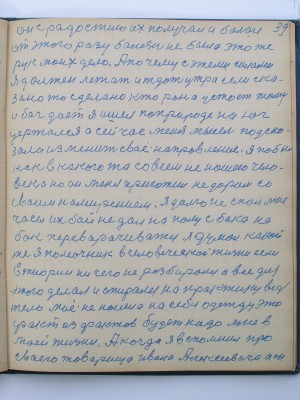 он с радостью их получал и болел 39
от этого разу болезни не была это же
рук моих дело. А почему с этими силами
я должен лежать и тдотиутра сем ска-
зано то сделано кто рона устоит тому
и бог даёт я ишел по природе на ног
держался а сейчас меня мысел подска-
зала изменить своё направление. Я побы
как в какого та совсем не нашего чело-
века но он меня пристыи недорам со
своим намерением. Я долго не спал мне
часы их бой не дал на полу с бока на
бок переварачиваяи я думал какой
же я помочник в человеческой жизни если
в теории ничего не разбираюся а все делу
этого делал и старался на практику ведь
тело моё не носила на себи одежду это
факт из фактов будет надо мне в
моей жизни. А когда я вспомнил про
своего товарища ивана Алексеевича а он